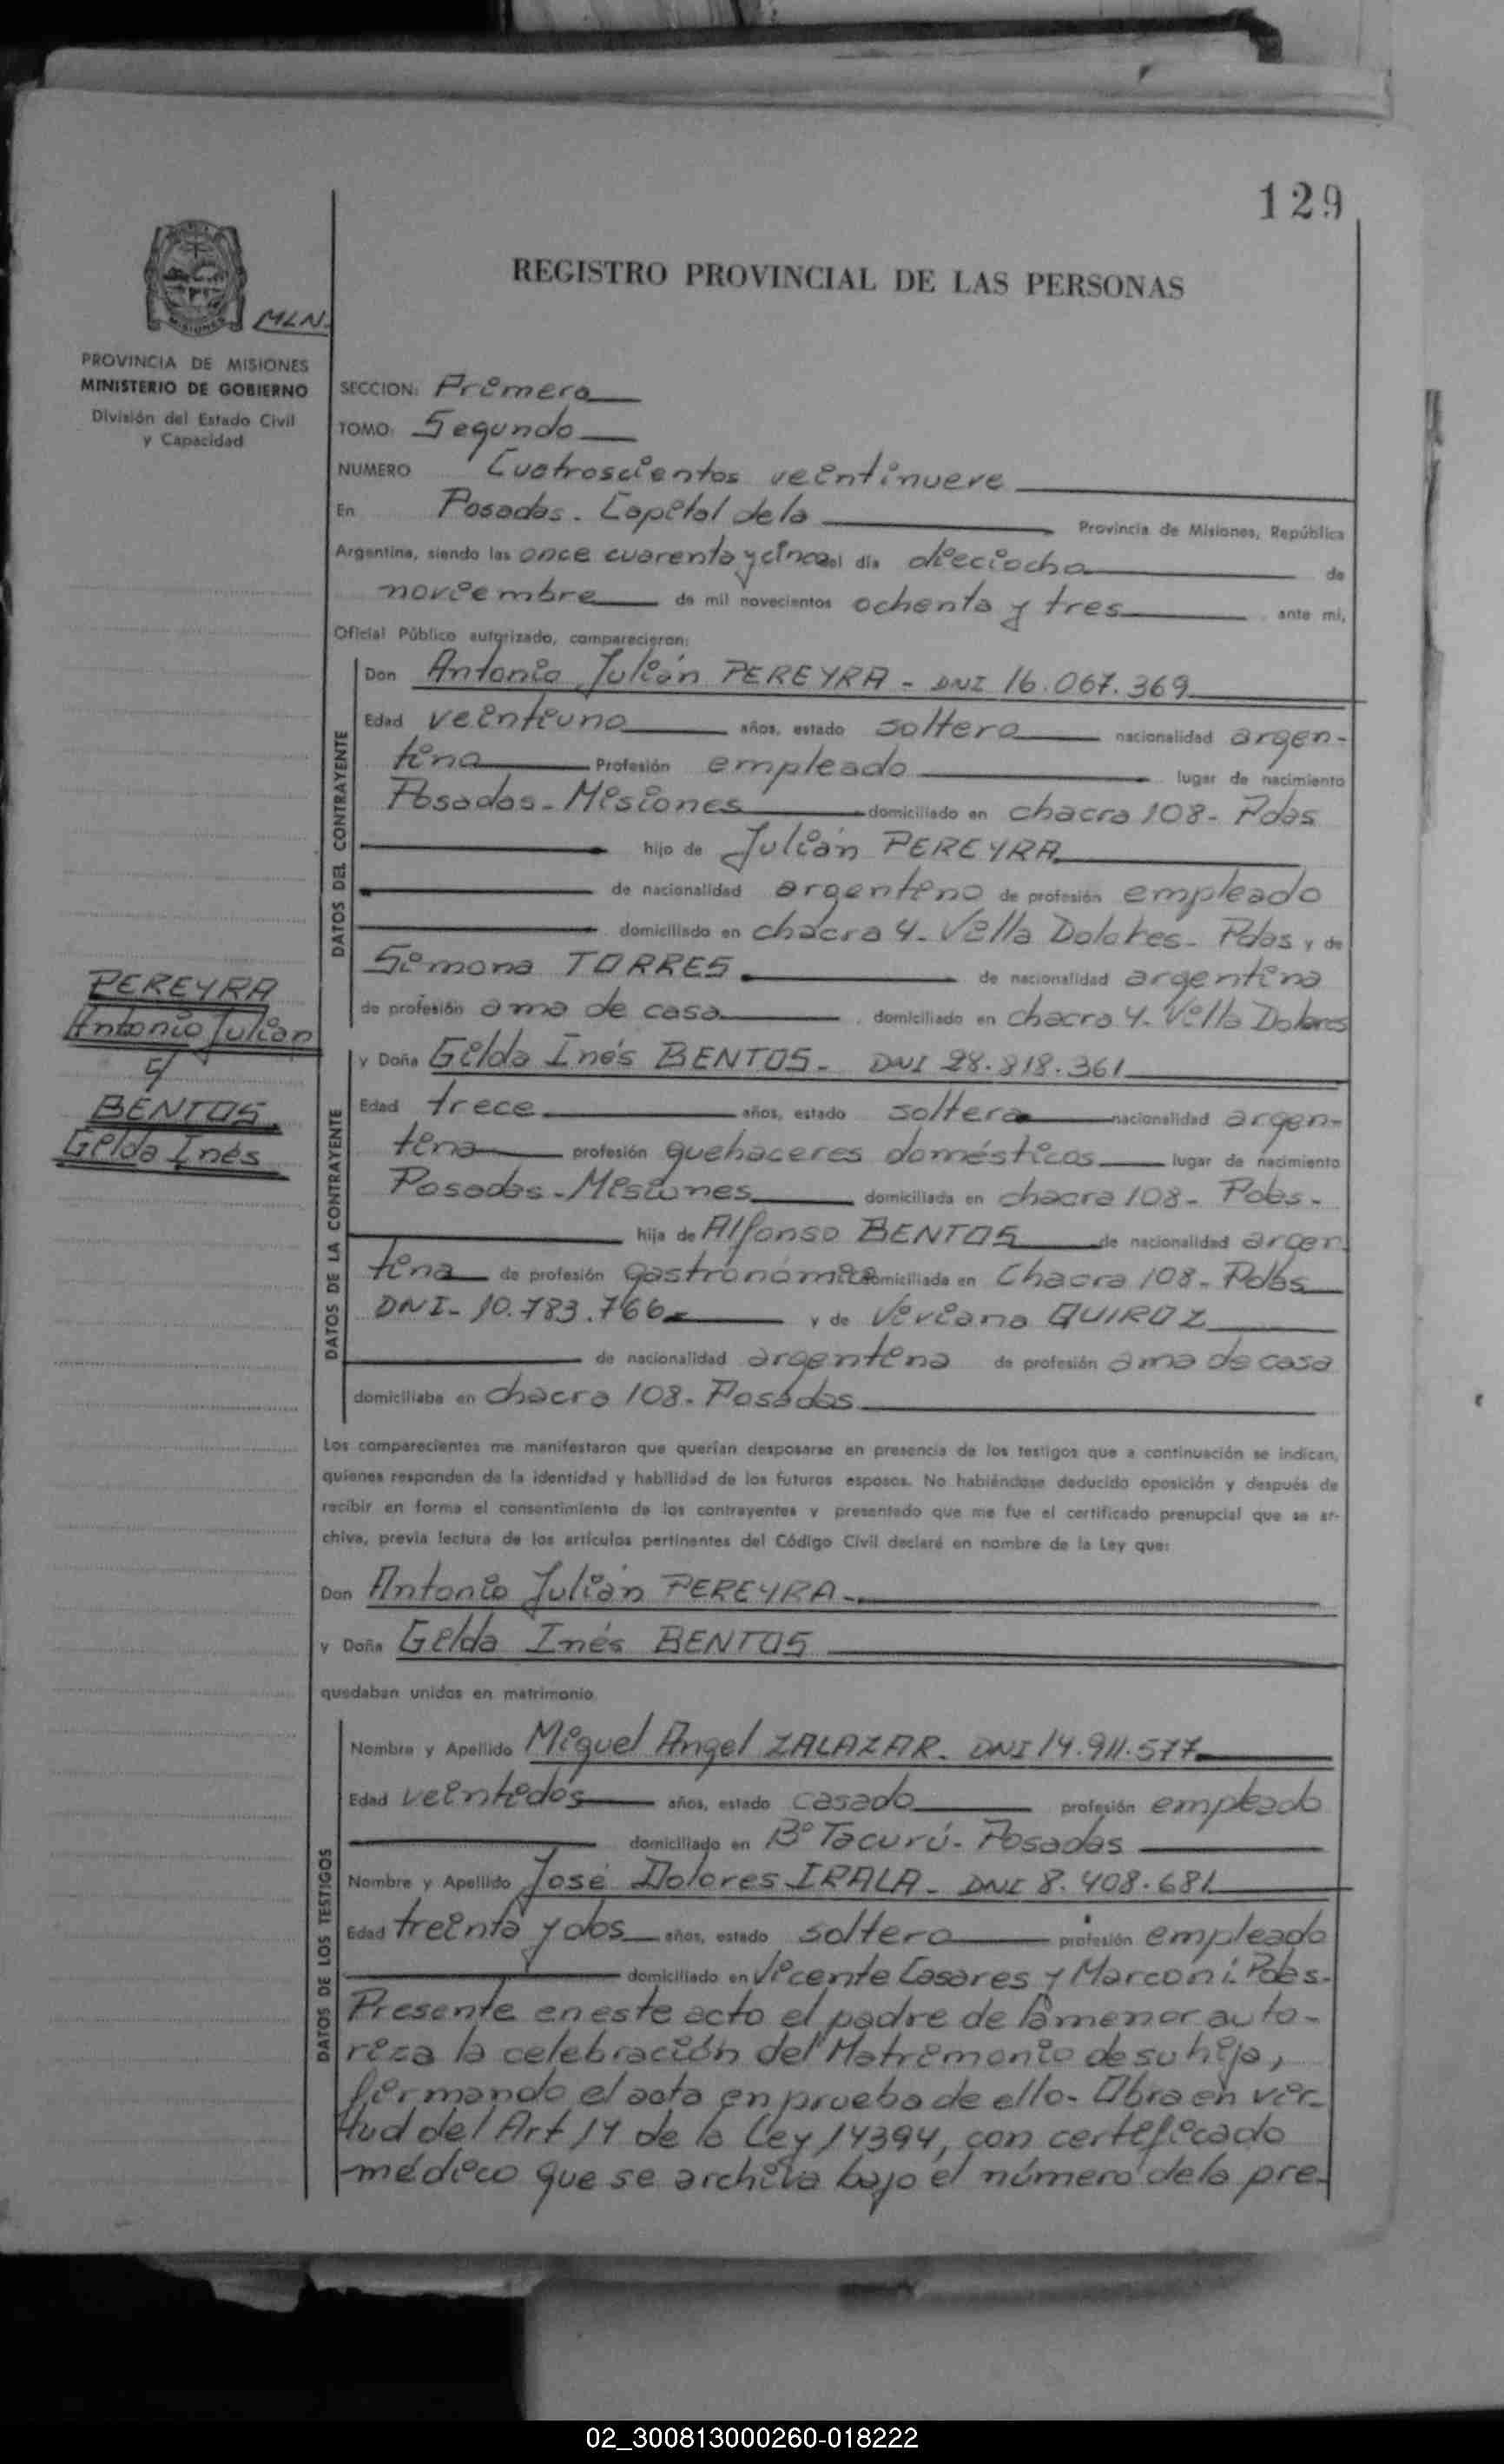 129
REGISTRO PROVINCIAL DE LAS PERSONAS
MISIONES
MLN.
PROVINCIA DE MISIONES
MINISTERIO DE GOBIERNO
División del Estado Civil
y Capacidad
SECCION: Primera
TOMO: Segundo
NUMERO Cuatroscientos veintinueve
En Posadas. Capital de la Provincia de Misiones, República
Argentina, siendo las once cuarenta y cinco del día dieciocho de
noviembre de mil novecientos ochenta y tres ante mí,
Oficial Público autorizado, comparecieron:
DATOS DEL CONTRAYENTE
Don Antonio Julián PEREYRA - DNI 16.067.369
Edad veintiuno años, estado soltero nacionalidad argen-
tina Profesión empleado lugar de nacimiento
Posadas - Misiones domiciliado en chacra 108 - Pdas
hijo de Julián PEREYRA
de nacionalidad argentino de profesión empleado
domiciliado en chacra 4 - Villa Dolores - Pdas y de
Simona TORRES de nacionalidad argentina
de profesión ama de casa, domiciliado en chacra 4 - Villa Dolores
PEREYRA
Antonio Julian
c/
BENTOS
Gilda Inés
DATOS DE LA CONTRAYENTE
y Doña Gilda Inés BENTOS - DNI 28.818.361
Edad trece años, estado soltera nacionalidad argen-
tina profesión quehaceres domésticos lugar de nacimiento
Posadas - Misiones domiciliada en chacra 108 - Pdas -
hija de Alfonso BENTOS de nacionalidad argen
tina de profesión gastronómico domiciliada en Chacra 108 - Pdas
DNI - 10.783.766 - y de Viviana QUIROZ
de nacionalidad argentina de profesión ama de casa
domiciliaba en chacra 108 - Posadas
Los comparecientes me manifestaron que querían desposarse en presencia de los testigos que a continuación se indican,
quienes responden de la identidad y habilidad de los futuros esposos. No habiéndose deducido oposición y después de
recibir en forma el consentimiento de los contrayentes y presentado que me fue el certificado prenupcial que se ar-
chiva, previa lectura de los artículos pertinentes del Código Civil declaré en nombre de la Ley que:
Don Antonio Julián PEREYRA -
y Doña Gilda Inés BENTOS
quedaban unidos en matrimonio
DATOS DE LOS TESTIGOS
Nombre y Apellido Miguel Angel ZALAZAR - DNI 14.911.577
Edad veintidós años, estado casado profesión empleado
domiciliado en Bº Tacurú - Posadas
Nombre y Apellido José Dolores IRALA - DNI 8.408.681
Edad treinta y dos años, estado soltero profesión empleado
domiciliado en Vicente Casares y Marconi - Pdas -
Presente en este acto el padre de la menor auto-
riza la celebración del Matrimonio de su hija,
firmando el acta en prueba de ello - Obra en vir-
tud del Art 14 de la Ley 14394, con certificado
médico que se archiva bajo el número de la pre-
02_300813000260-018222